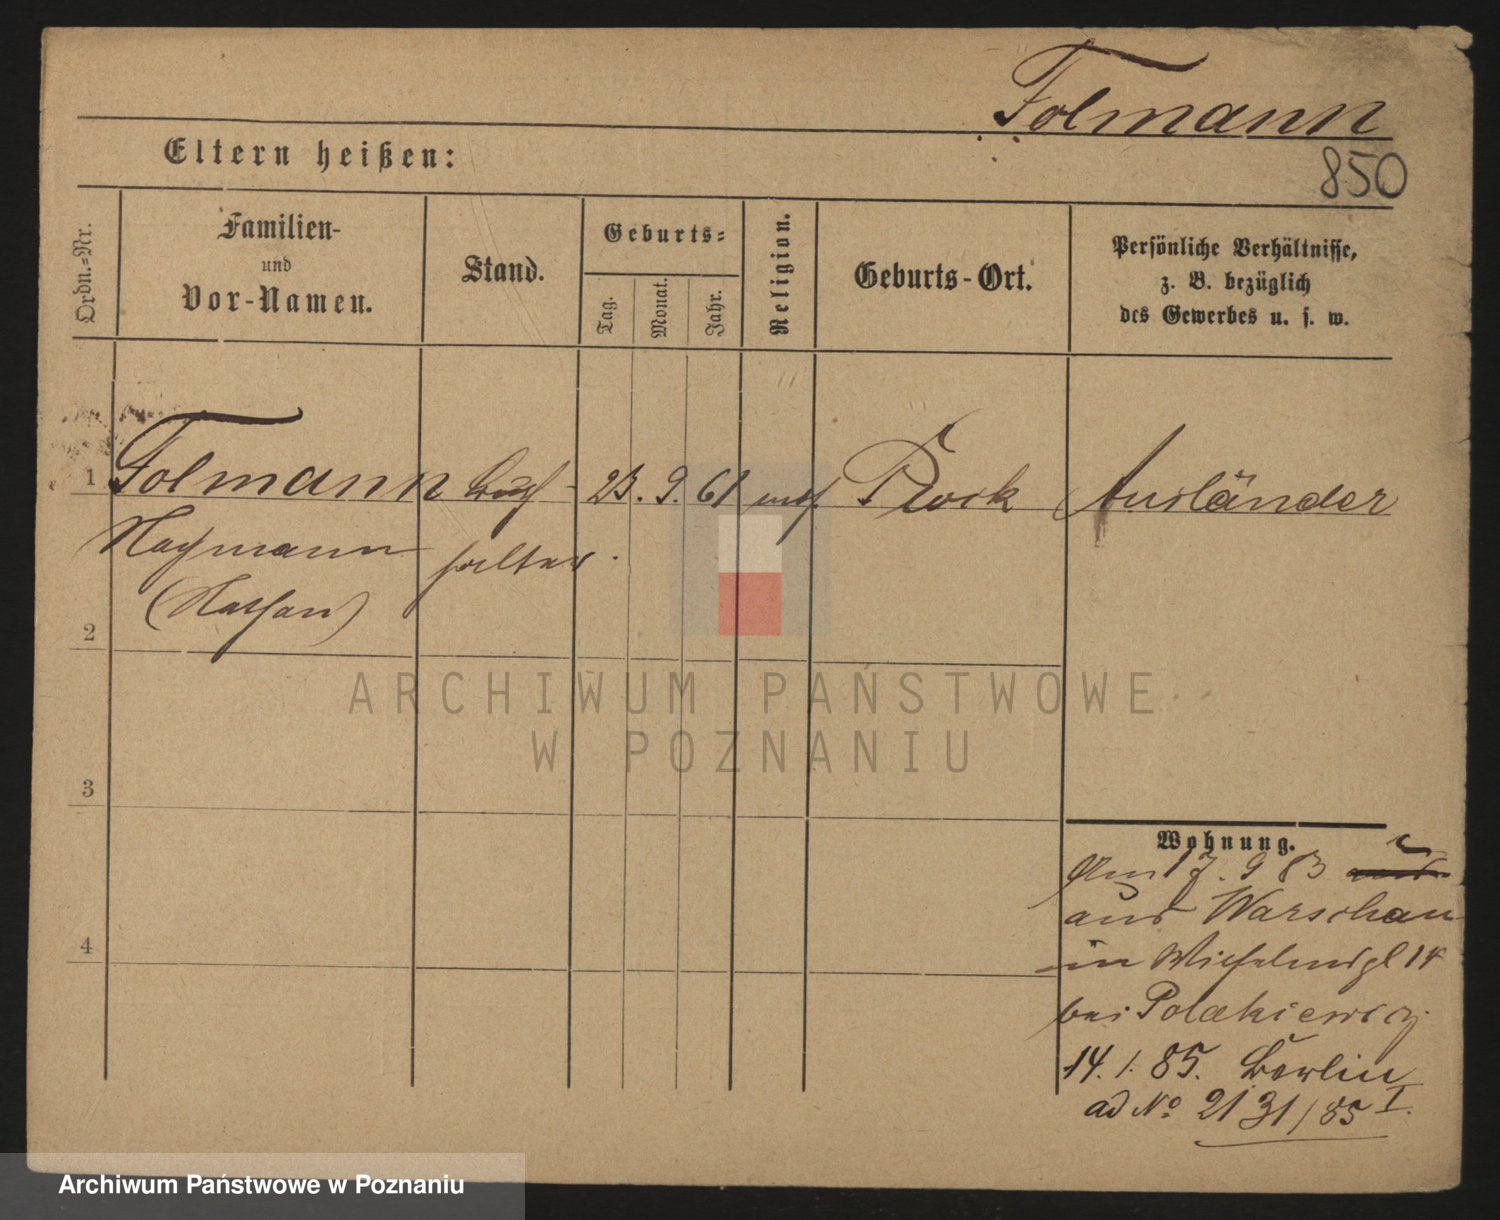 Tolmann
850
Eltern heißen:
Ordn.-Nr.
Familien-
und
Vor-Namen.
Stand.
Geburts-
Tag.
Monat.
Jahr.
Religion.
Geburts-Ort.
Persönliche Verhältnisse,
z. B. bezüglich
des Gewerbes u. s. w.
1 Tolmann Buch- 23. 9. 61 mos. Plock Ausländer
Naymann halter.
(Nathan)
2
3
4
Wohnung.
Am 17. 9 83
aus Warschau
in 14
bei Polakiewicz
14. 1. 85. Berlin
ad No 2131/85 I.
ARCHIWUM PAŃSTWOWE
W POZNANIU
Archiwum Państwowe w Poznaniu